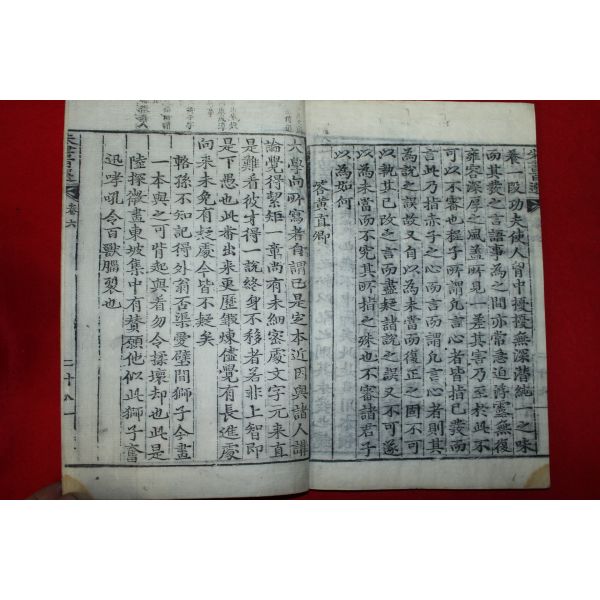 養一段功夫使人胷中擾擾無深潛純一之味
而其發之言語事為之間亦常急迫浮露無復
雍容深厚之風蓋所見一差其害乃至於此不
可以不審也程子所謂凡言心者皆指已發而
言此乃指赤子之心而言而謂凡言心者則其
為說之誤故又自以為未當而復正之固不可
以執其已改之言而盡疑諸說之誤又不可遂
以為未當而不究其所指之殊也不審諸君子
以為如何
答黃直卿
大學向所寫者自謂已是定本近因與諸人講
論覺得絜矩一章尚有未細密處文字元來直
是難看彼才得一說終身不移者若非上智即
是下愚也此番出來更歷鍛煉儘覺有長進處
向來未免有疑處今皆不疑矣
輅孫不知記得外翁否渠愛壁間獅子今畫
一本與之可背起與看勿令揉壞却也此是
陸探微畫東坡集中有贊願他似此獅子奮
迅哮吼令百獸腦裂也
卷六
二十八